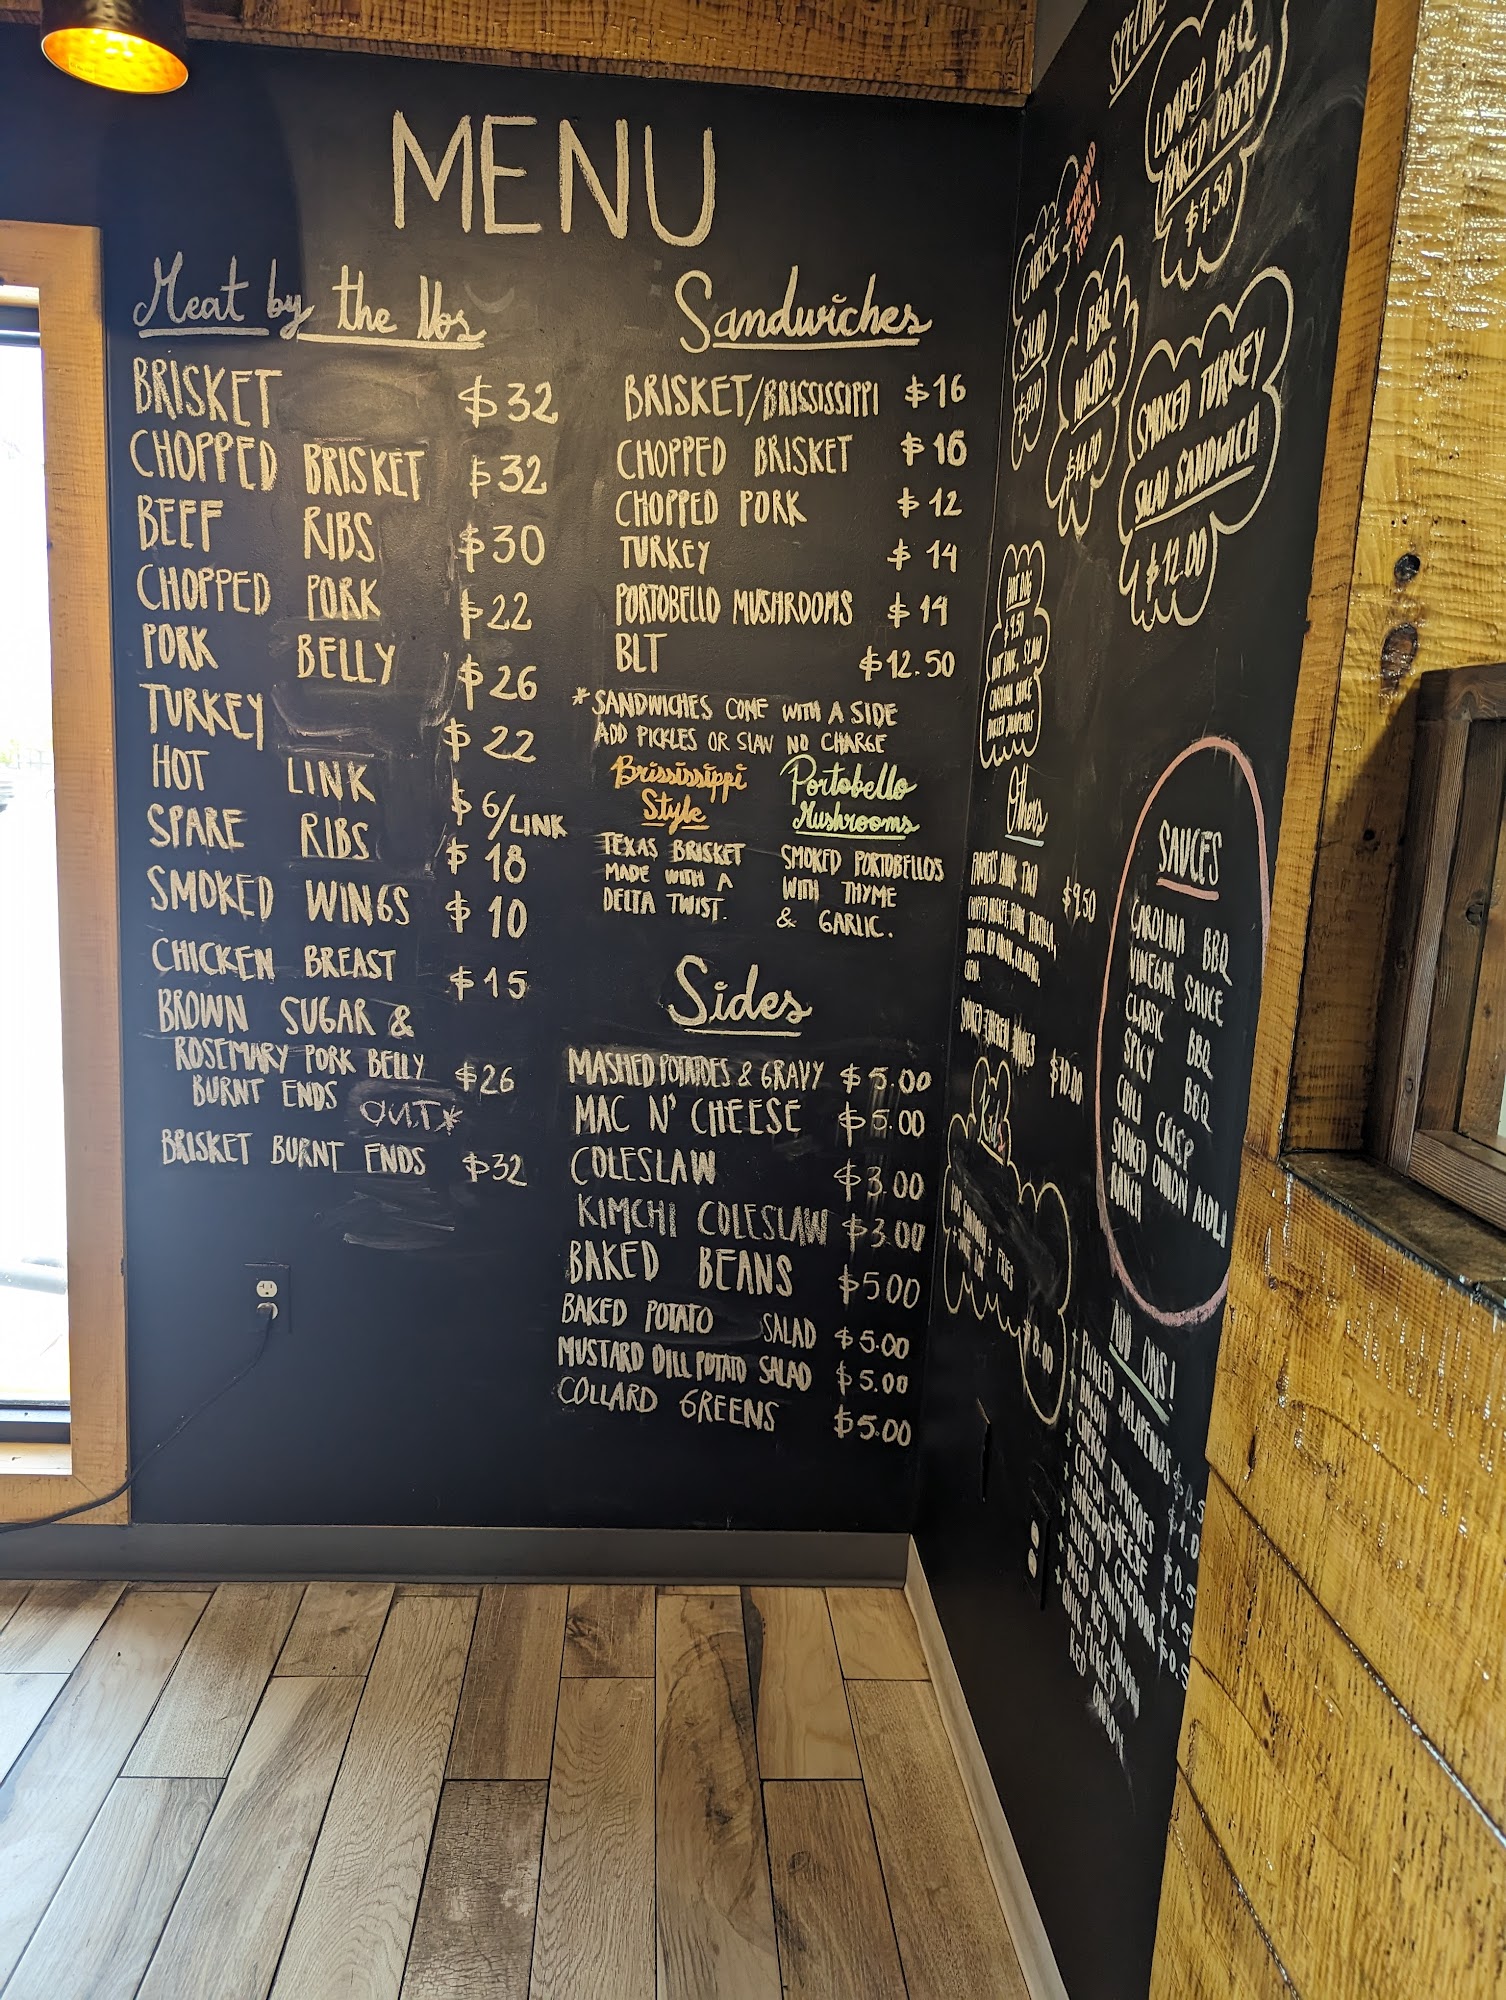 MENU
Meat by the lbs
BRISKET $32
CHOPPED BRISKET $32
BEEF RIBS $30
CHOPPED PORK $22
PORK BELLY $26
TURKEY $22
HOT LINK $6/LINK
SPARE RIBS $18
SMOKED WINGS $10
CHICKEN BREAST $15
BROWN SUGAR &
ROSEMARY PORK BELLY $26
BURNT ENDS OUT*
BRISKET BURNT ENDS $32
Sandwiches
BRISKET/BRISSISSIPPI $16
CHOPPED BRISKET $16
CHOPPED PORK $12
TURKEY $14
PORTOBELLO MUSHROOMS $14
BLT $12.50
*SANDWICHES COME WITH A SIDE
ADD PICKLES OR SLAW NO CHARGE
Brississippi
Style
TEXAS BRISKET
MADE WITH A
DELTA TWIST.
Portobello
Mushrooms
SMOKED PORTOBELLO'S
WITH THYME
& GARLIC.
Sides
MASHED POTATOES & GRAVY $5.00
MAC N' CHEESE $5.00
COLESLAW $3.00
KIMCHI COLESLAW $3.00
BAKED BEANS $5.00
BAKED POTATO SALAD $5.00
MUSTARD DILL POTATO SALAD $5.00
COLLARD GREENS $5.00
SPECIALS
LOADED BBQ
BAKED POTATO
$9.50
*BRAND
NEW
ITEM!
CAPRESE
SALAD
$9.00
BBQ
NACHOS
$14.00
SMOKED TURKEY
SALAD SANDWICH
$12.00
HOT DOG
$9.50
HOT LINK, SLAW
CAROLINA SAUCE
PICKLED JALAPENOS
Others
FARMERS BANK TACO $9.50
SMOKED CHICKEN WINGS $10.00
Kids
KIDS SANDWICH + FRIES
$8.00
SAUCES
CAROLINA BBQ
VINEGAR SAUCE
CLASSIC BBQ
SPICY BBQ
CHILI CRISP
SMOKED ONION AIOLI
RANCH
ADD ONS!
+ PICKLED JALAPENOS $0.5
+ BACON $1.0
+ CHERRY TOMATOES $0.5
+ COTIJA CHEESE $0.5
+ SHREDDED CHEDDAR $0.5
+ SLICED ONION
+ DICED RED ONION
+ QUICK PICKLED
RED ONION